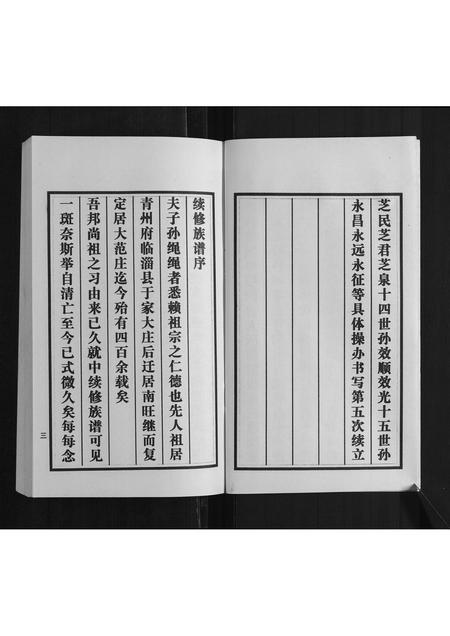 芝民芝君芝泉十四世孙效顺效光十五世孙
永昌永远永征等具体操办书写第五次续立
续修族谱序
夫子孙绳绳者悉赖祖宗之仁德也先人祖居
青州府临淄县于家大庄后迁居南旺继而复
定居大范庄迄今殆有四百余载矣
吾邦尚祖之习由来已久就中续修族谱可见
一斑奈斯举自清亡至今已式微久矣每每念
三